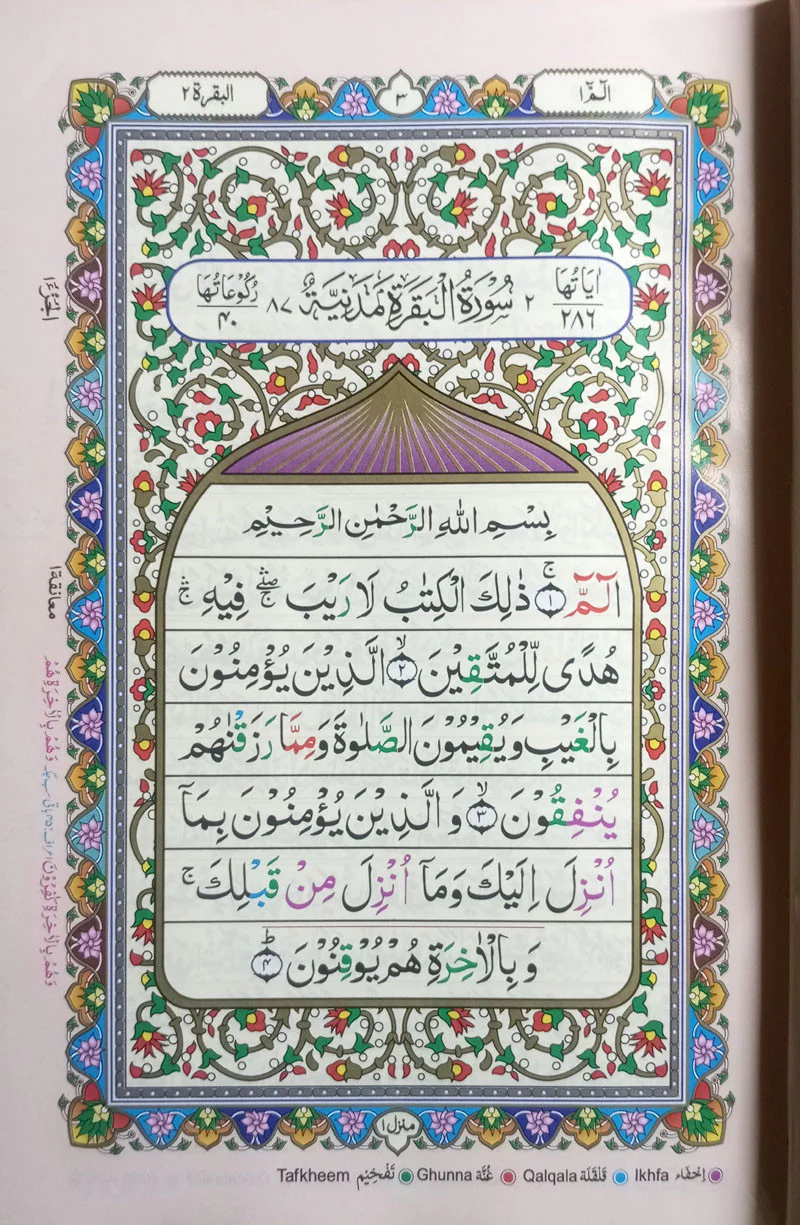 الٓمّٓ ١
٣
البقرة ٢
اٰيَاتُهَا ٢٨٦
٢ سُوْرَةُ الْبَقَرَةِ مَدَنِيَّةٌ ٨٧
رُكُوْعَاتُهَا ٤٠
بِسْمِ اللهِ الرَّحْمٰنِ الرَّحِيْمِ
الٓمّٓ ۚ ١ ذٰلِكَ الْكِتٰبُ لَا رَيْبَ ۛۖۚ فِيْهِ ۛۚ
هُدًى لِّلْمُتَّقِيْنَ ۙ ٢ الَّذِيْنَ يُؤْمِنُوْنَ
بِالْغَيْبِ وَيُقِيْمُوْنَ الصَّلٰوةَ وَمِمَّا رَزَقْنٰهُمْ
يُنْفِقُوْنَ ۙ ٣ وَالَّذِيْنَ يُؤْمِنُوْنَ بِمَآ
اُنْزِلَ اِلَيْكَ وَمَآ اُنْزِلَ مِنْ قَبْلِكَ ۚ
وَبِالْاٰخِرَةِ هُمْ يُوْقِنُوْنَ ؕ ٤
الْجُزْءُ ١
معانقة ١
وَهُمْ بِالْاٰخِرَةِ هُمْ
وَهُمْ بِالْاٰخِرَةِ كٰفِرُوْنَ
منزل ١
اِخفَاء Ikhfa قَلْقَلَة Qalqala غُنَّة Ghunna تَفْخِيْم Tafkheem